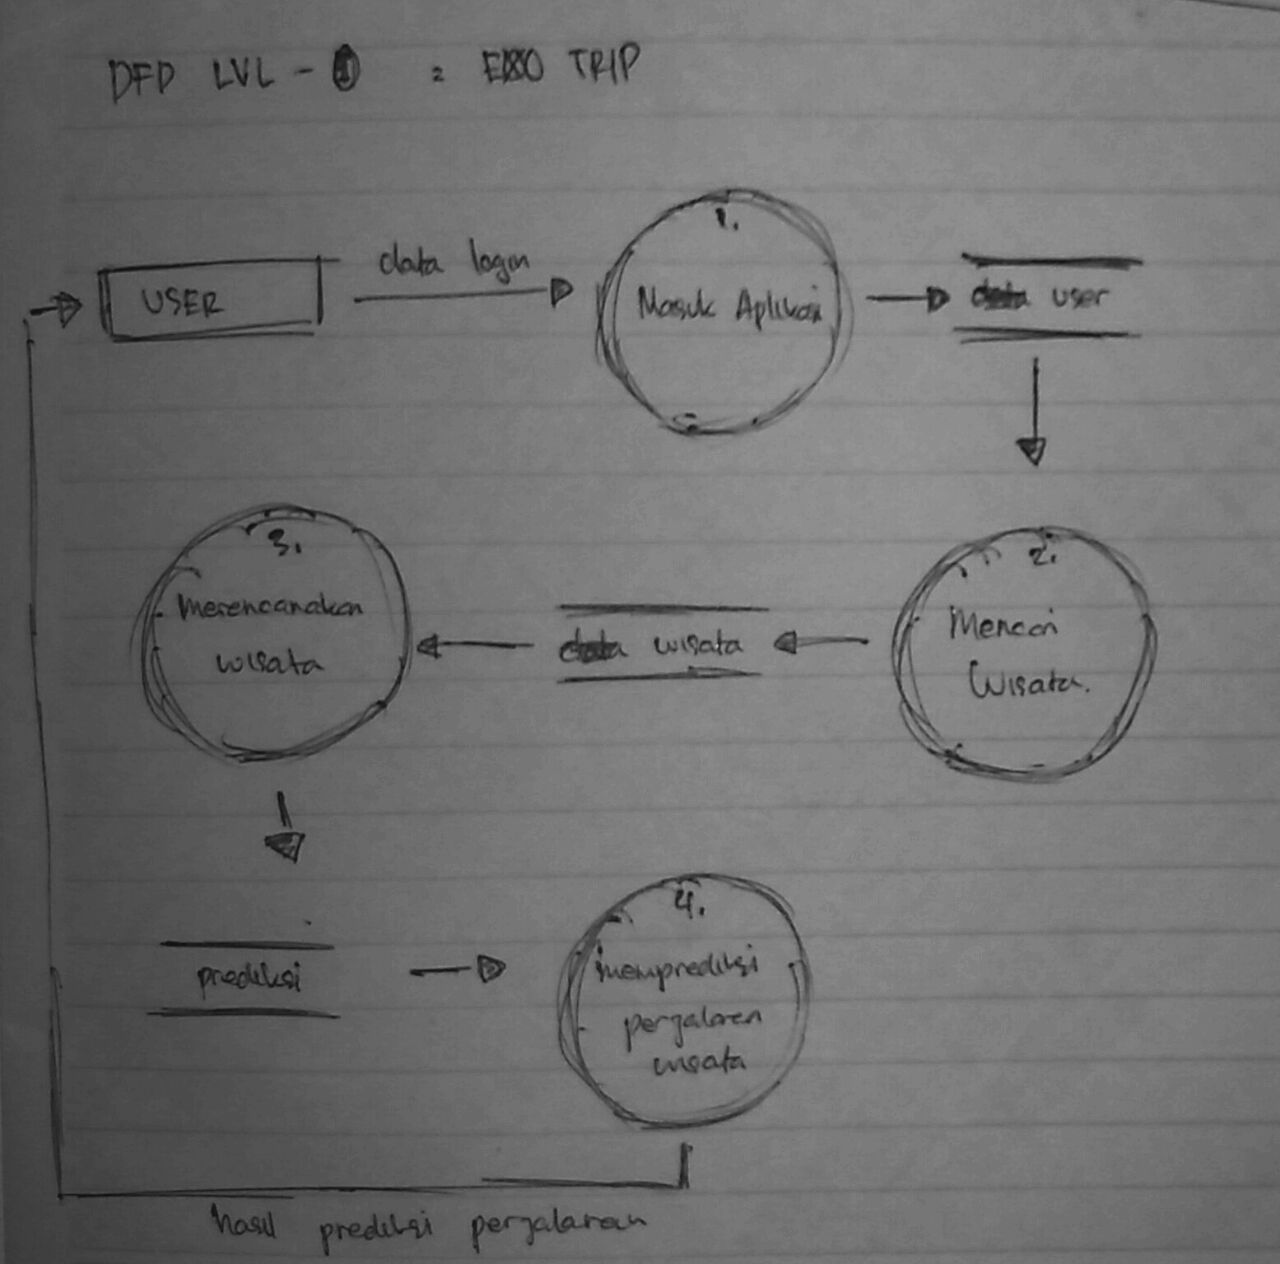 DFD LVL - 1 : TRIP
USER
data login
1.
Masuk Aplikasi
user
3.
Merencanakan
wisata
wisata
2.
Mencari
Wisata.
prediksi
4.
memprediksi
perjalanan
wisata
hasil prediksi perjalanan